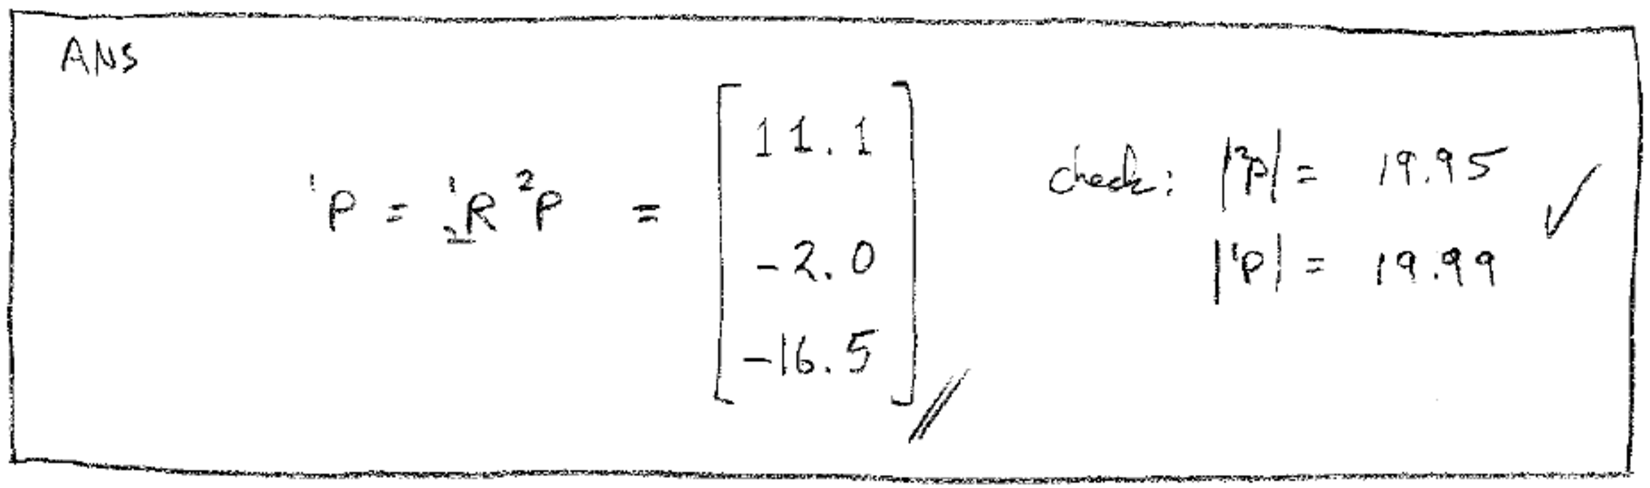 ANS
¹P = ¹₂R ²P = [ 11.1
-2.0
-16.5 ]
check: |²P| = 19.95 ✓
|¹P| = 19.99